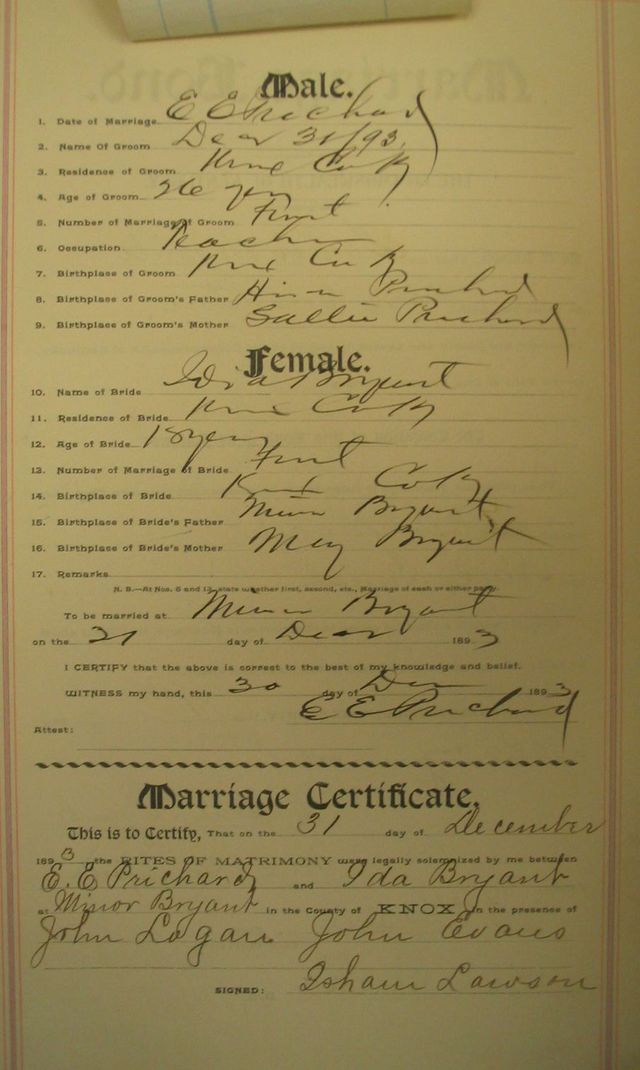 Male.
1. Date of Marriage E E Prichard
2. Name Of Groom Decr 31/93
3. Residence of Groom Knox Co Ky
4. Age of Groom 26 yrs
5. Number of Marriage of Groom First
6. Occupation Teacher
7. Birthplace of Groom Knox Co Ky
8. Birthplace of Groom's Father Prichard
9. Birthplace of Groom's Mother Sallie Prichard
Female.
10. Name of Bride Ida Bryant
11. Residence of Bride Knox Co Ky
12. Age of Bride years
13. Number of Marriage of Bride First
14. Birthplace of Bride Knox Co Ky
15. Birthplace of Bride's Father Minor Bryant
16. Birthplace of Bride's Mother Bryant
17. Remarks
N. B.—At Nos. 5 and 13, state whether first, second, etc., Marriage of each or either party.
To be married at Minor Bryant
on the 31 day of Decr 1893
I CERTIFY that the above is correct to the best of my knowledge and belief.
WITNESS my hand, this 30 day of Dec 1893
E E Prichard
Attest:
Marriage Certificate.
This is to Certify, That on the 31 day of December
1893 the RITES OF MATRIMONY were legally solemnized by me between
E. E Prichard and Ida Bryant
at Minor Bryant in the County of KNOX in the presence of
John Logan John Evans
SIGNED: Isham Lawson